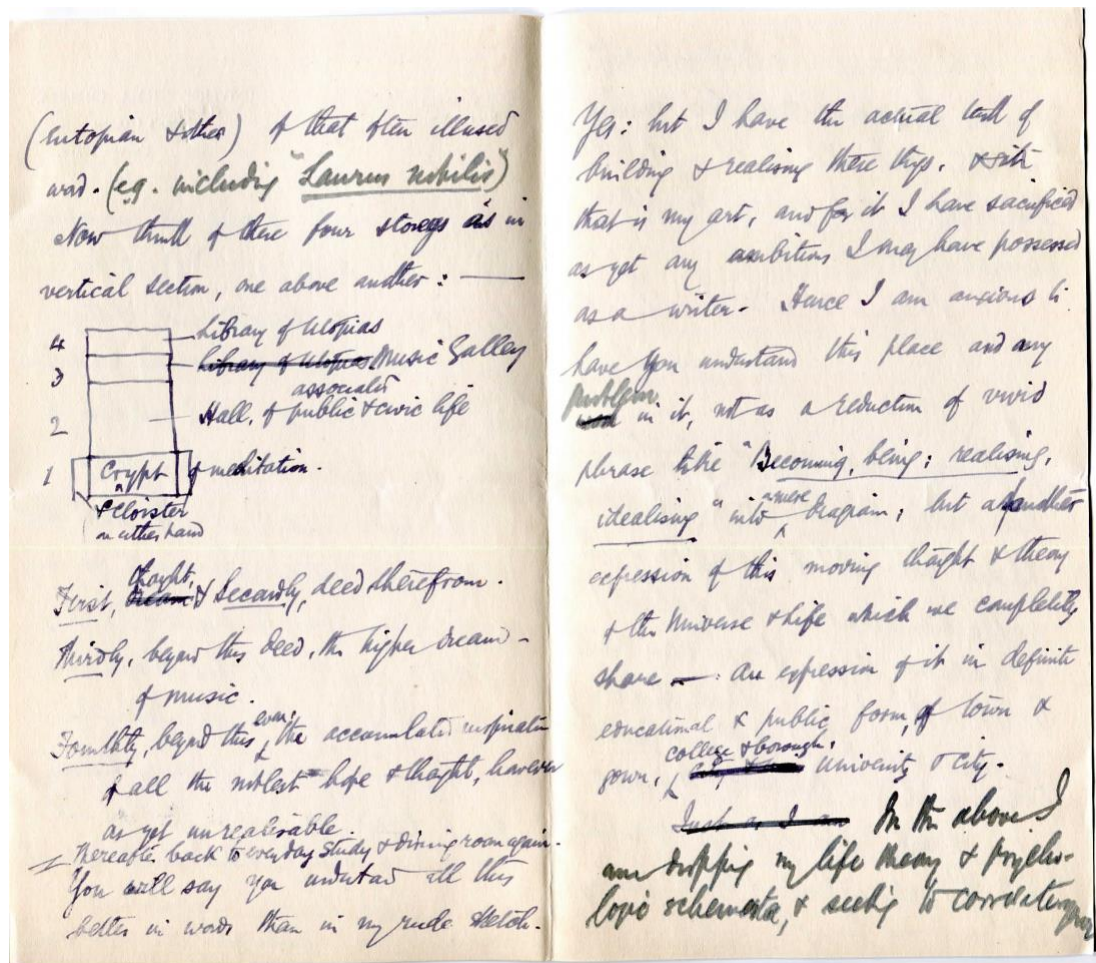 (eutopian & other) of that often illused
word. (eg. including "Laurus nobilis")
Now think of these four storeys as in
vertical section, one above another: —
4 Library of Utopias
3 Library of Utopias Music Gallery
associated
2 Hall, of public & civic life
1 Crypt of meditation.
& Cloister
on either hand
thought,
First, dream & Secondly, deed therefrom.
Thirdly, beyond this deed, the higher dream –
of music.
even,
Fourthly, beyond this the accumulated inspiration
of all the noblest hope & thought, however
as yet unrealisable.
= Thereafter back to everyday study & dining room again.
You will say you understand all this
better in words than in my rude sketch.
Yes: but I have the actual task of
building & realising these things.
that is my art, and for it I have sacrificed
as yet any ambitions I may have possessed
as a writer. Hence I am anxious to
have you understand this place and my
problem
in it, not as a reduction of vivid
phrase like "Becoming, being; realising,
a mere
idealising" into diagram; but as another
expression of this moving thought & theory
of the Universe & Life which we completely
share — an expression of it in definite
educational & public form, of town &
college & borough,
gown, university & city.
Just as I am In the above I
am dropping my life theory & psycho-
logic schemata, & seeking to correlate your